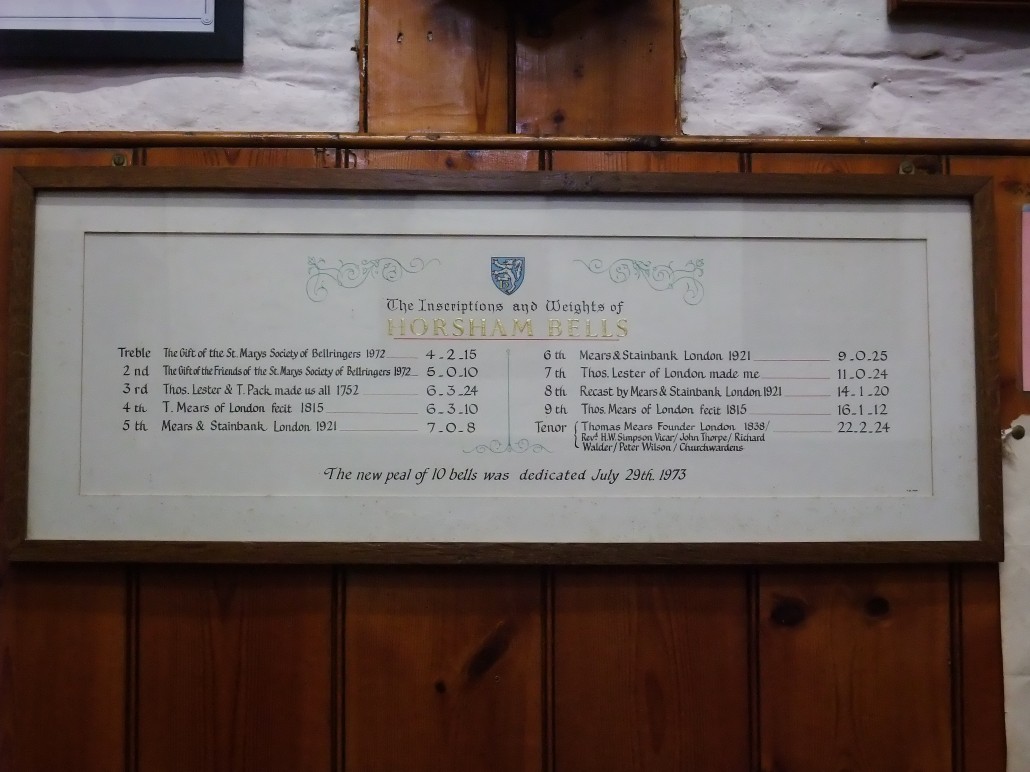 The Inscriptions and Weights of
HORSHAM BELLS
Treble The Gift of the St. Marys Society of Bellringers 1972 4-2-15
2nd The Gift of the Friends of the St. Marys Society of Bellringers 1972 5-0-10
3rd Thos. Lester & T. Pack made us all 1752 6-3-24
4th T. Mears of London fecit 1815 6-3-10
5th Mears & Stainbank London 1921 7-0-8
6th Mears & Stainbank London 1921 9-0-25
7th Thos. Lester of London made me 11-0-24
8th Recast by Mears & Stainbank London 1921 14-1-20
9th Thos. Mears of London fecit 1815 16-1-12
Tenor Thomas Mears Founder London 1838/ 22-2-24
Revd. H.W. Simpson Vicar/John Thorpe/Richard
Walder/Peter Wilson/Churchwardens
The new peal of 10 bells was dedicated July 29th. 1973